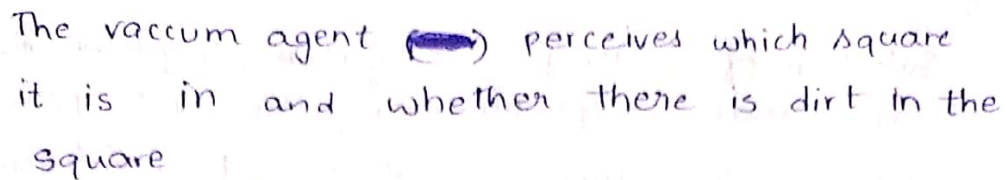 The vaccum agent perceives which square
it is in and whether there is dirt in the
square